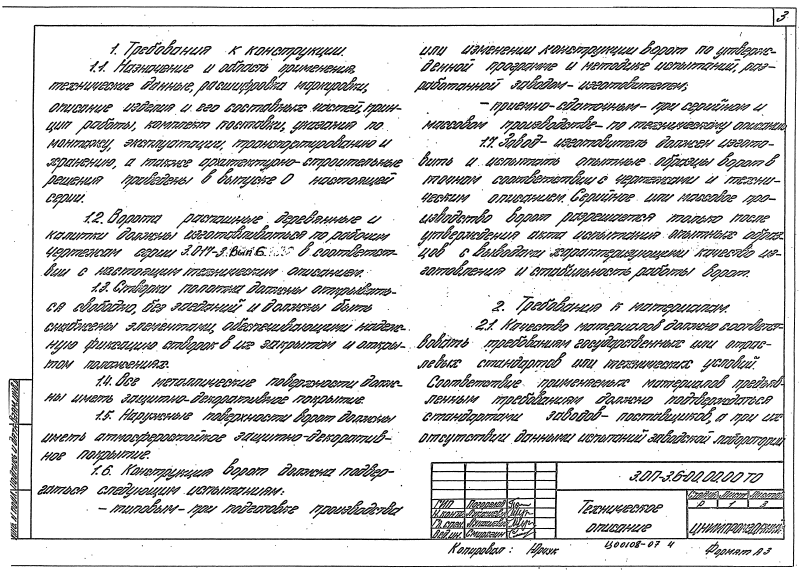 3
1. Требования к конструкции.
1.1. Назначение и область применения,
технические данные, расшифровка маркировки,
описание изделия и его составных частей, прин-
цип работы, комплект поставки, указания по
монтажу, эксплуатации, транспортированию и
хранению, а также архитектурно-строительные
решения приведены в выпуске 0 настоящей
серии.
1.2. Ворота распашные деревянные и
калитки должны изготавливаться по рабочим
чертежам серии 3.017-3. Вып 6 в соответст-
вии с настоящим техническим описанием.
1.3. Створки полотна должны открывать-
ся свободно, без заеданий и должны быть
снабжены элементами, обеспечивающими надеж-
ную фиксацию створок в их закрытом и откры-
том положениях.
1.4. Все металлические поверхности долж-
ны иметь защитно-декоративное покрытие.
1.5. Наружные поверхности ворот должны
иметь атмосферостойкое защитно-декоратив-
ное покрытие.
1.6. Конструкция ворот должна подвер-
гаться следующим испытаниям:
- типовым - при подготовке производства
или изменении конструкции ворот по утверж-
денной программе и методике испытаний, раз-
работанной заводом-изготовителем;
- приемно-сдаточным - при серийном и
массовом производстве - по техническому описанию
1.7. Завод-изготовитель должен изгото-
вить и испытать опытные образцы ворот в
точном соответствии с чертежами и техни-
ческим описанием. Серийное или массовое про-
изводство ворот разрешается только после
утверждения акта испытаний опытных образ-
цов с выводами, характеризующими качество из-
готовления и стабильность работы ворот.
2. Требования к материалам.
2.1. Качество материалов должно соответст-
вовать требованиям государственных или отрас-
левых стандартов или технических условий.
Соответствие применяемых материалов предъяв-
ленным требованиям должно подтверждаться
стандартами заводов-поставщиков, а при их
отсутствии данными испытаний заводской лаборатории
3.017-3.6-00.00.00 ТО
ГИП
Н.контр
Гл.спец
Вед.ин.
Техническое
описание
Стадия Лист Листов
Р 1 3
Копировал: Юрак
Ц00108-07 4
Формат А3